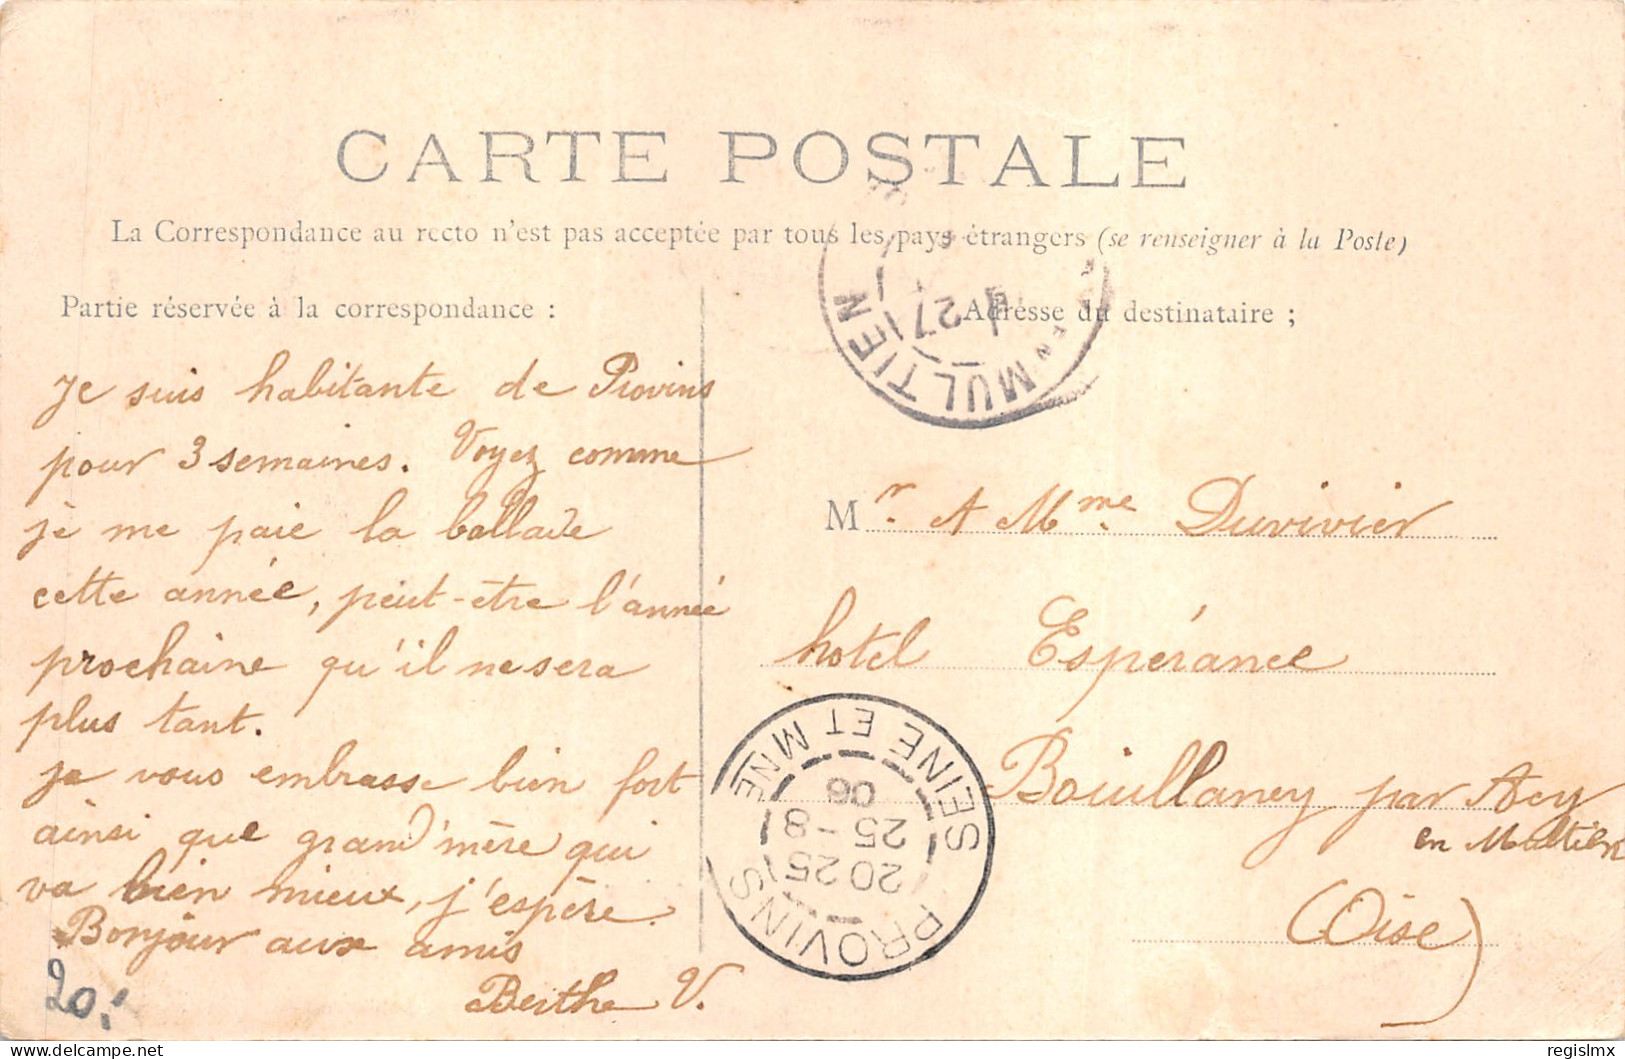 CARTE POSTALE
La Correspondance au recto n'est pas acceptée par tous les pays étrangers (se renseigner à la Poste)
Partie réservée à la correspondance :
Je suis habitante de Provins
pour 3 semaines. Voyez comme
je me paie la ballade
cette année, peut-être l'année
prochaine qu'il ne sera
plus tant.
je vous embrasse bien fort
ainsi que grand'mère qui
va bien mieux, j'espère.
Bonjour aux amis
Berthe V.
20.
Adresse du destinataire ;
Mr. & Mme Duvivier
hotel Espérance
Bouillancy par Acy
en Multien
(Oise)
EN MULTIEN
27
PROVINS
SEINE ET MNE
20 25
25 - 8
06
regislmx